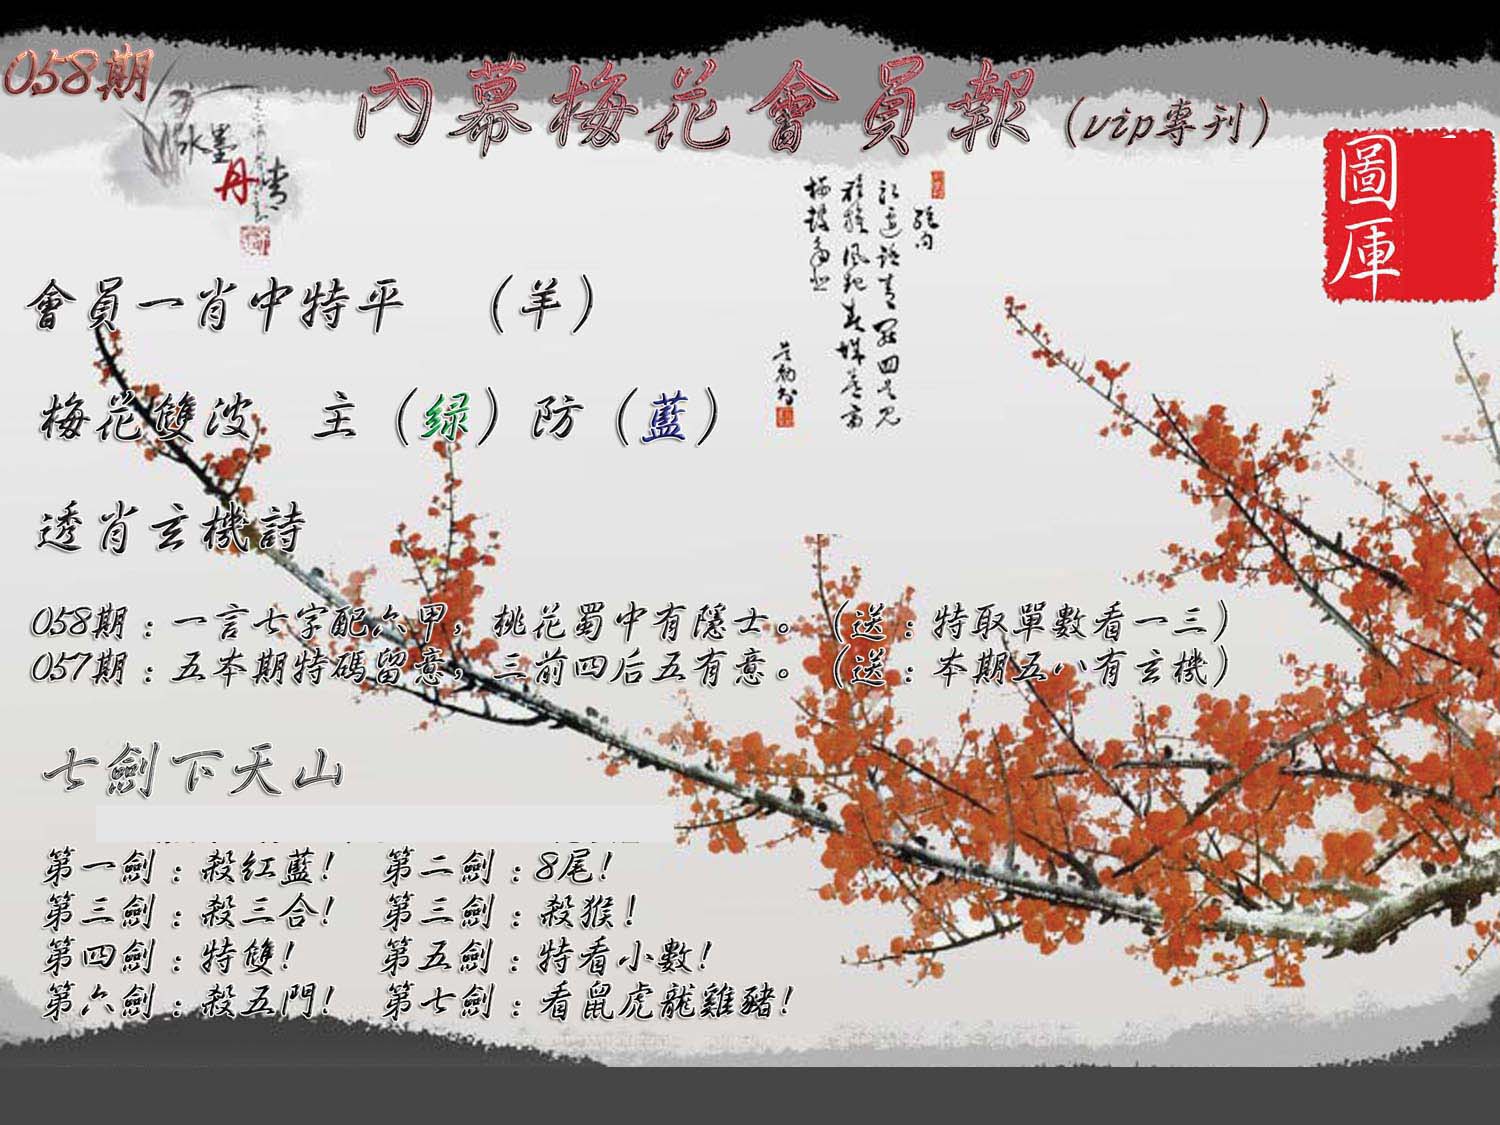 058期
內幕梅花會員報（vip專刊）
水墨
丹青
圖庫
會員一肖中特平　（羊）
梅花雙波　主（绿）防（藍）
透肖玄機詩
058期：一言七字配六甲，桃花蜀中有隱士。（送：特取單數看一三）
057期：五本期特碼留意，三前四后五有意。（送：本期五八有玄機）
七劍下天山
第一劍：殺紅藍！　第二劍：8尾！
第三劍：殺三合！　第三劍：殺猴！
第四劍：特雙！　第五劍：特看小數！
第六劍：殺五門！　第七劍：看鼠虎龍雞豬！